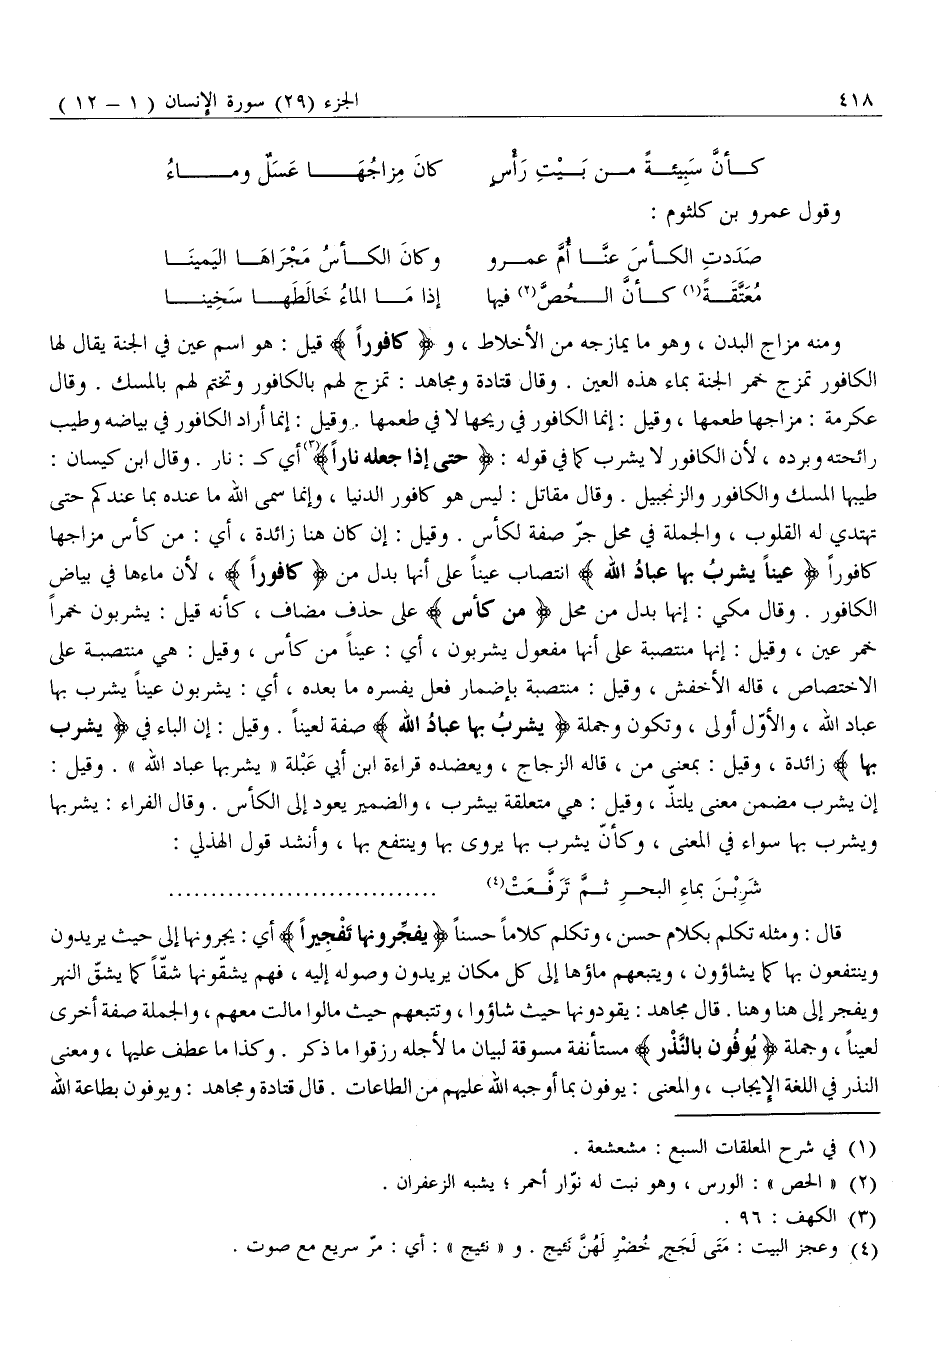 ٤١٨ الجزء (٢٩) سورة الإنسان (١ - ١٢)
كـأنَّ سَبِيئـةً مـن بَـيْتِ رَأْسٍ كانَ مِزاجُهَـا عَسَلٌ ومـاءُ
وقول عمرو بن كلثوم :
صَدَدتِ الكـأسَ عنَّـا أُمَّ عمـرو وكانَ الكـأسُ مَجْرَاهَـا اليَمينَـا
مُعَتَّقَـةً(١) كـأنَّ الـحُصَّ(٢) فيها إذا مَـا الماءُ خَالَطَهـا سَخِينـا
ومنه مزاج البدن ، وهو ما يمازجه من الأخلاط ، و ﴿ كافوراً ﴾ قيل : هو اسم عين في الجنة يقال لها
الكافور تمزج خمر الجنة بماء هذه العين . وقال قتادة ومجاهد : تمزج لهم بالكافور وتختم لهم بالمسك . وقال
عكرمة : مزاجها طعمها ، وقيل : إنما الكافور في ريحها لا في طعمها . وقيل : إنما أراد الكافور في بياضه وطيب
رائحته وبرده ، لأن الكافور لا يشرب كما في قوله : ﴿ حتى إذا جعله ناراً ﴾(٣) أي كـ : نار . وقال ابن كيسان :
طيبها المسك والكافور والزنجبيل . وقال مقاتل : ليس هو كافور الدنيا ، وإنما سمى الله ما عنده بما عندكم حتى
تهتدي له القلوب ، والجملة في محل جرّ صفة لكأس . وقيل : إن كان هنا زائدة ، أي : من كأس مزاجها
كافوراً ﴿ عيناً يشربُ بها عبادُ الله ﴾ انتصاب عيناً على أنها بدل من ﴿ كافوراً ﴾ ، لأن ماءها في بياض
الكافور . وقال مكي : إنها بدل من محل ﴿ من كأس ﴾ على حذف مضاف ، كأنه قيل : يشربون خمراً
خمر عين ، وقيل : إنها منتصبة على أنها مفعول يشربون ، أي : عيناً من كأس ، وقيل : هي منتصبة على
الاختصاص ، قاله الأخفش ، وقيل : منتصبة بإضمار فعل يفسره ما بعده ، أي : يشربون عيناً يشرب بها
عباد الله ، والأوّل أولى ، وتكون وجملة ﴿ يشربُ بها عبادُ الله ﴾ صفة لعيناً . وقيل : إن الباء في ﴿ يشرب
بها ﴾ زائدة ، وقيل : بمعنى من ، قاله الزجاج ، ويعضده قراءة ابن أبي عَبْلة « يشربها عباد الله » . وقيل :
إن يشرب مضمن معنى يلتذّ ، وقيل : هي متعلقة بيشرب ، والضمير يعود إلى الكأس . وقال الفراء : يشربها
ويشرب بها سواء في المعنى ، وكأنّ يشرب بها يروى بها وينتفع بها ، وأنشد قول الهذلي :
شَرِبْـنَ بماءِ البحـرِ ثـمَّ تَرَفَّـعَتْ(٤) ................................
قال : ومثله تكلم بكلام حسن ، وتكلم كلاماً حسناً ﴿ يفجِّرونها تَفْجِيراً ﴾ أي : يجرونها إلى حيث يريدون
وينتفعون بها كما يشاؤون ، ويتبعهم ماؤها إلى كل مكان يريدون وصوله إليه ، فهم يشقّونها شقّاً كما يشقّ النهر
ويفجر إلى هنا وهنا . قال مجاهد : يقودونها حيث شاؤوا ، وتتبعهم حيث مالوا مالت معهم ، والجملة صفة أخرى
لعيناً ، وجملة ﴿ يُوفُون بالنَّذْر ﴾ مستأنفة مسوقة لبيان ما لأجله رزقوا ما ذكر . وكذا ما عطف عليها ، ومعنى
النذر في اللغة الإيجاب ، والمعنى : يوفون بما أوجبه الله عليهم من الطاعات . قال قتادة ومجاهد : ويوفون بطاعة الله
(١) في شرح المعلقات السبع : مشعشعة .
(٢) « الحص » : الورس ، وهو نبت له نوّار أحمر ؛ يشبه الزعفران .
(٣) الكهف : ٩٦ .
(٤) وعجز البيت : مَتَى لَجَجٍ خُضْرٍ لَهُنَّ نَئيج . و « نئيج » : أي : مرّ سريع مع صوت .